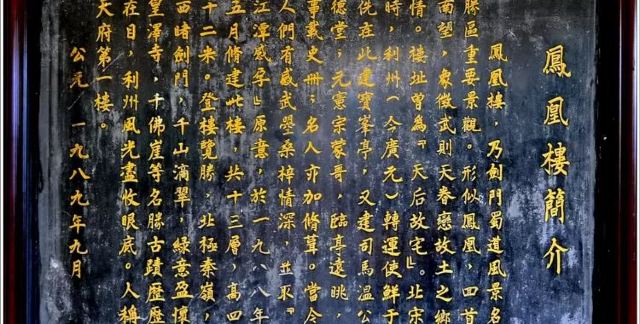 鳳凰樓簡介
鳳凰樓，乃劍門蜀道風景名
勝區重要景觀。形似鳳凰，四首
南望，象徵武則天眷戀故土之鄉
情。樓址曾爲『天后故宅』。北宋
時，利州（今廣元）轉運使鮮于
侁在此建寶峯亭，又建司馬溫公
德堂，元憲宗蒙哥，臨亭遠眺，
事載史冊；名人亦加脩葺。當今
人們有感武曌桑梓情深，並取『
江潭感孕』原意，於一九八八年
五月脩建此樓，共十三層，高四
十二米。登樓覽勝，北極秦嶺，
西睹劍門，千山滴翠，綠意盈懷
皇澤寺，千佛崖等名勝古蹟歷歷
在目，利州風光盡收眼底。人稱
天府第一樓。
公元一九八九年九月